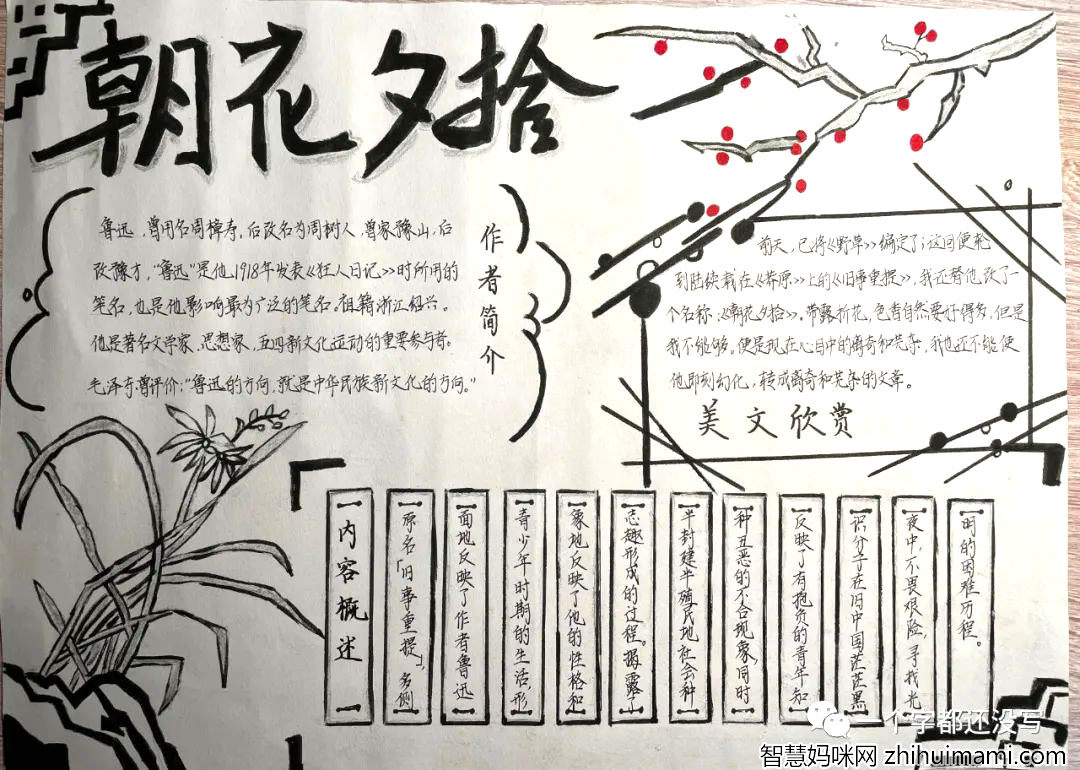 朝花夕拾
鲁迅，曾用名周樟寿，后改名为周树人，曾字豫山，后
改豫才，“鲁迅”是他1918年发表《狂人日记》时所用的
笔名，也是他影响最为广泛的笔名。祖籍浙江绍兴。
他是著名文学家、思想家，五四新文化运动的重要参与者。
毛泽东曾评价：“鲁迅的方向，就是中华民族新文化的方向。”
作者简介
前天，已将《野草》编定了；这回便轮
到陆续载在《莽原》上的《旧事重提》，我还替他改了一
个名称：《朝花夕拾》。带露折花，色香自然要好得多，但是
我不能够。便是现在心目中的离奇和芜杂，我也还不能使
他即刻幻化，转成离奇和芜杂的文章。
美文欣赏
内容概述
原名「旧事重提」，多侧
面地反映了作者鲁迅
青少年时期的生活，形
象地反映了他的性格和
志趣形成的过程。揭露了
半封建半殖民地社会种
种丑恶的不合现象，同时
反映了有抱负的青年知
识分子在旧中国茫茫黑
夜中，不畏艰险，寻找光
明的困难历程。
一个字都还没写
智慧妈咪网 zhihuimami.com